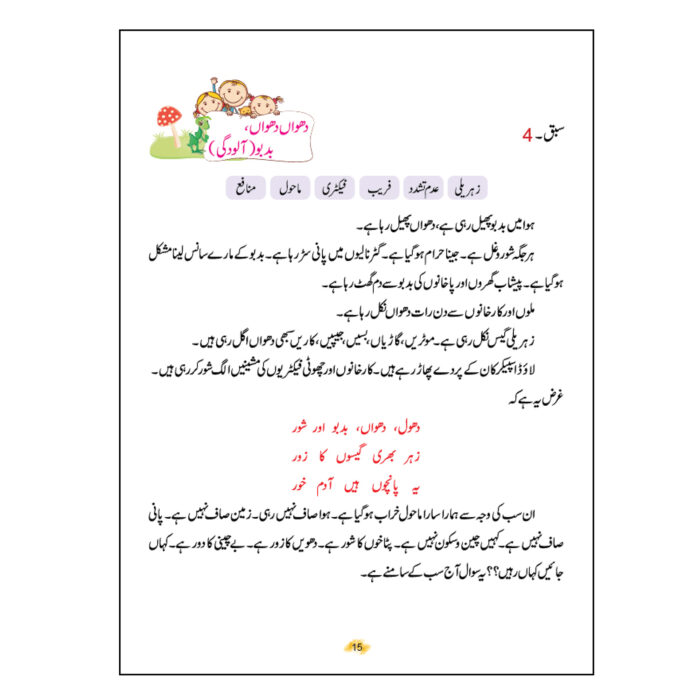 سبق ۔ 4
دھواں دھواں،
بدبو (آلودگی)
زہریلی عدم تشدد فریب فیکٹری ماحول منافع
ہوا میں بدبو پھیل رہی ہے، دھواں پھیل رہا ہے۔
ہر جگہ شور و غل ہے۔ جینا حرام ہوگیا ہے۔ گٹر نالیوں میں پانی سڑ رہا ہے۔ بدبو کے مارے سانس لینا مشکل
ہوگیا ہے۔ پیشاب گھروں اور پاخانوں کی بدبو سے دم گھٹ رہا ہے۔
ملوں اور کارخانوں سے دن رات دھواں نکل رہا ہے۔
زہریلی گیس نکل رہی ہے۔ موٹریں، گاڑیاں، بسیں، جیپیں، کاریں سبھی دھواں اگل رہی ہیں۔
لاؤڈ اسپیکر کان کے پردے پھاڑ رہے ہیں۔ کارخانوں اور چھوٹی فیکٹریوں کی مشینیں الگ شور کر رہی ہیں۔
غرض یہ ہے کہ
دھول، دھواں، بدبو اور شور
زہر بھری گیسوں کا زور
یہ پانچوں ہیں آدم خور
ان سب کی وجہ سے ہمارا سارا ماحول خراب ہوگیا ہے۔ ہوا صاف نہیں رہی۔ زمین صاف نہیں ہے۔ پانی
صاف نہیں ہے۔ کہیں چین و سکون نہیں ہے۔ پٹاخوں کا شور ہے۔ دھویں کا زور ہے۔ بے چینی کا دور ہے۔ کہاں
جائیں کہاں رہیں؟؟ یہ سوال آج سب کے سامنے ہے۔
15